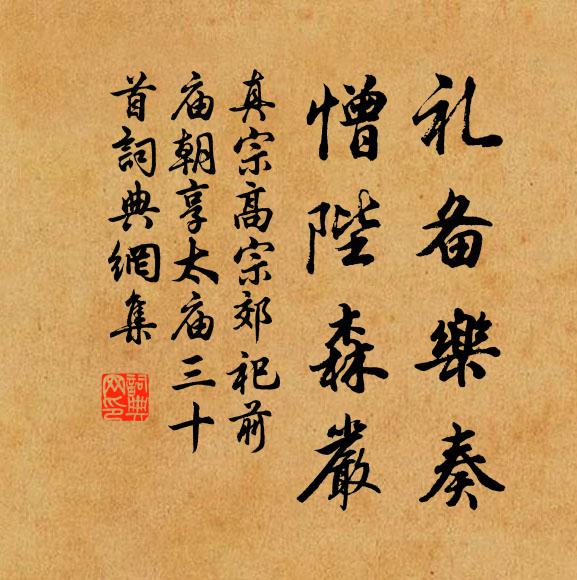 礼备樂奏
憎陛森嚴
真宗高宗郊祀前
庙朝享太庙三十
首詞典網集
詞典网印